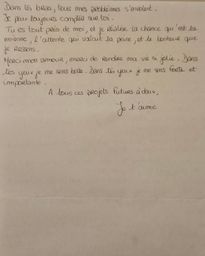 Dans tes bras, tous mes problèmes s'envolent.
Je peux toujours compter sur toi.
Tu es tout près de moi, et je réalise la chance qui est la
mienne, l'attente qui valait la peine, et le bonheur que
je ressens.
Merci mon amour, merci de rendre ma vie si jolie. Dans
tes yeux je me sens belle. Dans tes yeux je me sens forte et
importante.
A tous ces projets futurs à deux,
Je t'aime